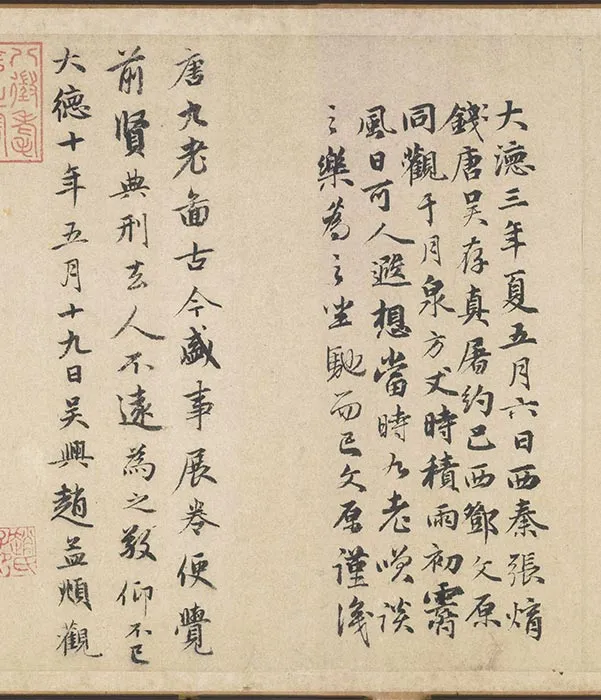 大德三年夏五月六日西秦張
錢唐吳存真屠約巴西鄧文原
同觀于月泉方丈時積雨初霽
風日可人遐想當時九老咲談
之樂為之坐馳而已文原謹識
唐九老啚古今盛事展卷便覺
前賢典刑去人不遠為之敬仰不已
大德十年五月十九日吳興趙孟頫觀
八徵耄
念之寶
趙氏